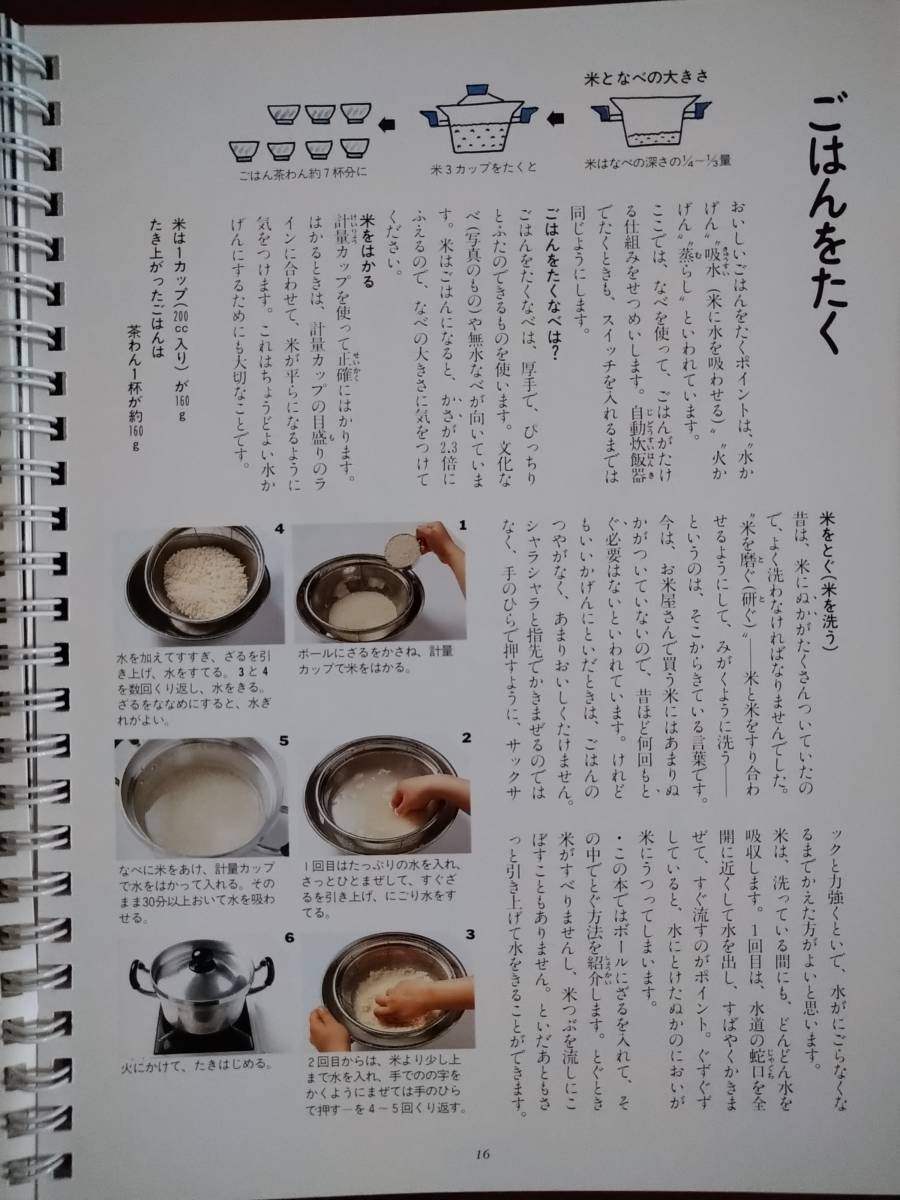 ごはんをたく
米となべの大きさ
米はなべの深さの¼〜⅓量
米3カップをたくと
ごはん茶わん約7杯分に
おいしいごはんをたくポイントは、〝水か
げん〟〝吸水(米に水を吸わせる)〟〝火か
げん〟〝蒸らし〟といわれています。
ここでは、なべを使って、ごはんがたけ
る仕組みをせつめいします。自動炊飯器
でたくときも、スイッチを入れるまでは
同じようにします。
ごはんをたくなべは?
ごはんをたくなべは、厚手で、ぴっちり
とふたのできるものを使います。文化な
べ(写真のもの)や無水なべが向いていま
す。米はごはんになると、かさが2.3倍に
ふえるので、なべの大きさに気をつけて
ください。
米をはかる
計量カップを使って正確にはかります。
はかるときは、計量カップの目盛りのラ
インに合わせて、米が平らになるように
気をつけます。これはちょうどよい水か
げんにするためにも大切なことです。
米は1カップ(200cc入り)が160g
たき上がったごはんは
茶わん1杯が約160g
米をとぐ(米を洗う)
昔は、米にぬかがたくさんついていたの
で、よく洗わなければなりませんでした。
〝米を磨ぐ(研ぐ)〟——米と米をすり合わ
せるようにして、みがくように洗う——
というのは、そこからきている言葉です。
今は、お米屋さんで買う米にはあまりぬ
かがついていないので、昔ほど何回もと
ぐ必要はないといわれています。けれど
もいいかげんにといだときは、ごはんの
つやがなく、あまりおいしくたけません。
シャラシャラと指先でかきまぜるのでは
なく、手のひらで押すように、サックサ
ックと力強くといで、水がにごらなくな
るまでかえた方がよいと思います。
米は、洗っている間にも、どんどん水を
吸収します。1回目は、水道の蛇口を全
開に近くして水を出し、すばやくかきま
ぜて、すぐ流すのがポイント。ぐずぐず
していると、水にとけたぬかのにおいが
米にうつってしまいます。
・この本ではボールにざるを入れて、そ
の中でとぐ方法を紹介します。とぐとき
米がすべりませんし、米つぶを流しにこ
ぼすこともありません。といだあともさ
っと引き上げて水をきることができます。
1
ボールにざるをかさね、計量
カップで米をはかる。
2
1回目はたっぷりの水を入れ、
さっとひとまぜして、すぐざ
るを引き上げ、にごり水をす
てる。
3
2回目からは、米より少し上
まで水を入れ、手でのの字を
かくようにまぜては手のひら
で押す—を4〜5回くり返す。
4
水を加えてすすぎ、ざるを引
き上げ、水をすてる。3と4
を数回くり返し、水をきる。
ざるをななめにすると、水ぎ
れがよい。
5
なべに米をあけ、計量カップ
で水をはかって入れる。その
まま30分以上おいて水を吸わ
せる。
6
火にかけて、たきはじめる。
16